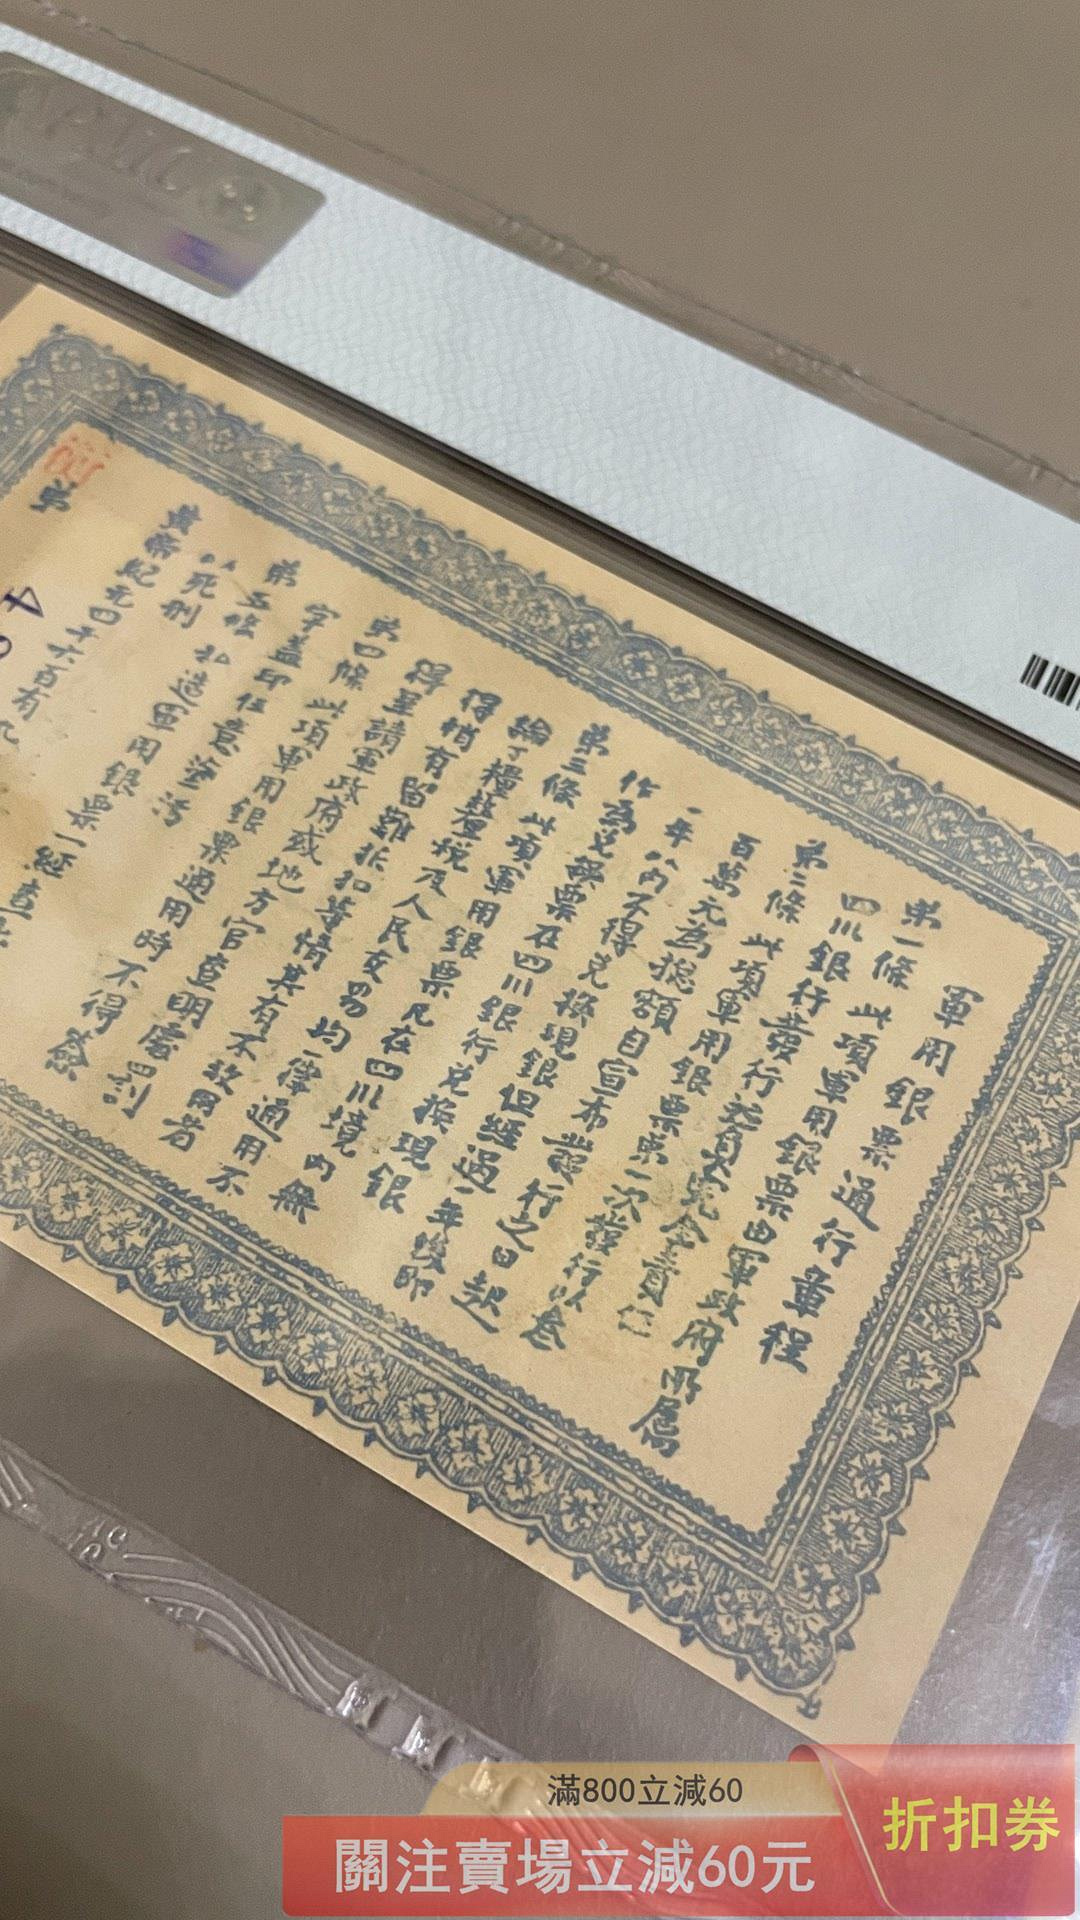 軍用銀票通行章程
第一條 此項軍用銀票由軍政府所屬
四川銀行發行
第二條 此項軍用銀票第一次發行以叁
百萬元為總額自宣布發行之日起
一年以內不得兌換現銀但經過一年後即
作為兌換票在四川銀行兌換現銀
第三條 此項軍用銀票凡在四川境內無
論丁糧釐稅及人民交易均一律通用不
得稍有留難折扣等情其有不收用者
得呈請軍政府或地方官查明處罰
第四條 此項軍用銀票通用時不得簽
字蓋印任意塗污
第五條 私造軍用銀票一經查
以死刑
黃帝紀元四千六百有九
第
滿800立減60
關注賣場立減60元
折扣券